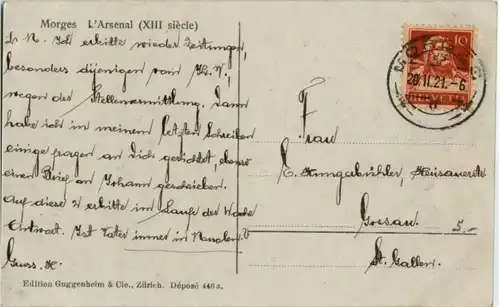 Morges L'Arsenal (XIII siècle)
L. N. Ich erbitte wieder Zeitungen,
besonders diejenigen vom
wegen der Stellenvermittlung. Dann
habe ich in meinem letzten Schreiben
einige fragen an Dich gerichtet, ebenso
einen Brief an Johann geschrieben.
Auf diese 2 erbitte im Laufe der Woche
Antwort. Ist Vater immer in
Gruss. H.
Edition Guggenheim & Cie., Zürich. Déposé 440a.
10
MORGES
20.II.21.-6
HELVETIA
Frau
E.
Gossau 5.-
St. Gallen.